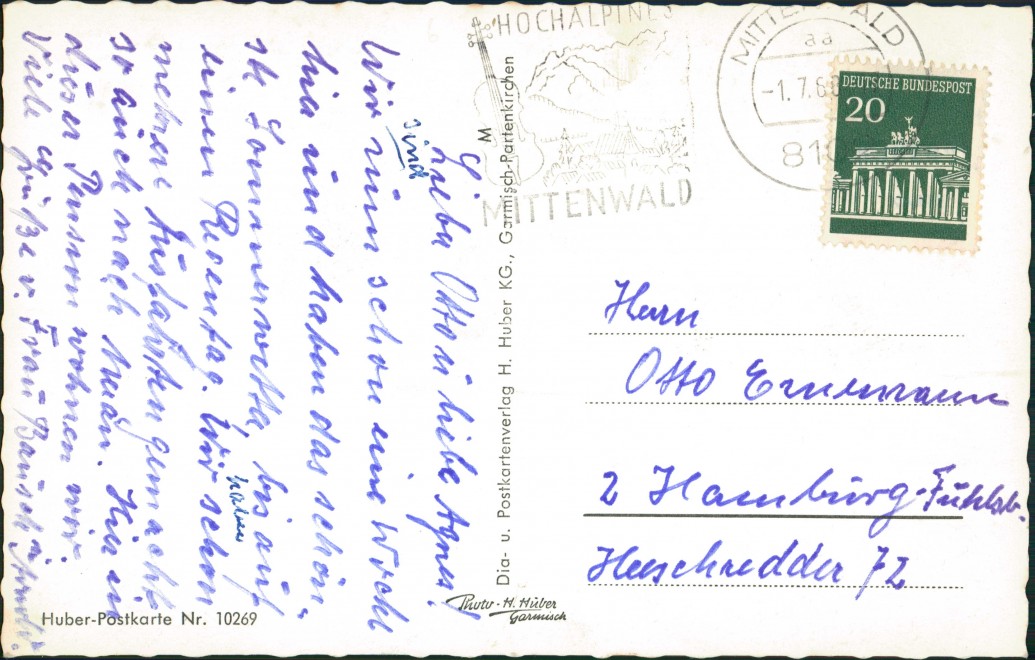 HOCHALPINES
MITTENWALD
M
MITTENWALD
aa
-1.7.6
81
DEUTSCHE BUNDESPOST
20
Liebe Otto u liebe Agnes!
sind
Wir nun schon eine Woche
hier und haben das schön-
ste Sommerwetter, bis auf
einen Regentag. Wir schon
haben
mehrere Ausfahrten gemacht
so auch nach Meran. Hier in
dieser Pension wohnen wir.
Viele Grüße v. Frau
Dia- u. Postkartenverlag H. Huber KG., Garmisch-Partenkirchen
Photo-H. Huber
Garmisch
Huber-Postkarte Nr. 10269
Herrn
Otto
2 Hamburg-Fuhlsb.
Heeschredder 72